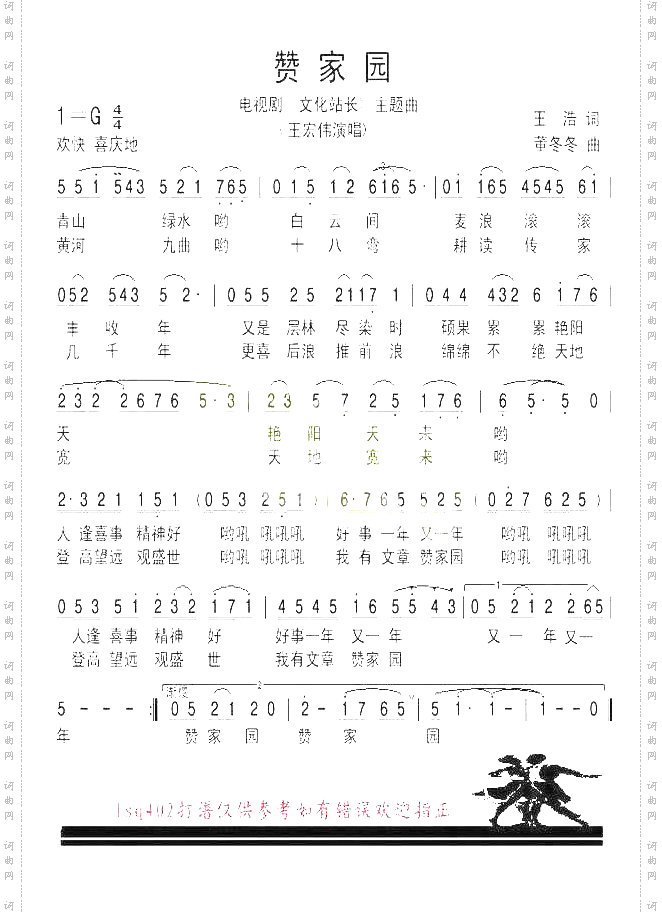 赞家园
电视剧 文化站长 主题曲
(王宏伟演唱)
1=G 4/4
欢快 喜庆地
王 浩 词
董冬冬 曲
5 5 1 5 4 3 5 2 1 7 6 5 | 0 1 5 1 2 6 1 6 5 · | 0 1 1 6 5 4 5 4 5 6 1 |
青山 绿水 哟 白 云 间 麦 浪 滚 滚
黄河 九曲 哟 十 八 弯 耕 读 传 家
0 5 2 5 4 3 5 2 · | 0 5 5 2 5 2 1 1 7 1 | 0 4 4 4 3 2 6 1 7 6 |
丰 收 年 又是 层林 尽 染 时 硕果 累 累 艳阳
几 千 年 更喜 后浪 推 前 浪 绵绵 不 绝 天地
2 3 2 2 6 7 6 5 · 3 | 2 3 5 7 2 5 1 7 6 | 6 5 · 5 0 |
天 艳 阳 天 来 哟
宽 天 地 宽 来 哟
2 · 3 2 1 1 5 1 ( 0 5 3 2 5 1 ) | 6 · 7 6 5 5 2 5 ( 0 2 7 6 2 5 ) |
人 逢喜事 精神好 哟吼 吼吼吼 好 事 一年 又一年 哟吼 吼吼吼
登 高望远 观盛世 哟吼 吼吼吼 我 有 文章 赞家园 哟吼 吼吼吼
0 5 3 5 1 2 3 2 1 7 1 | 4 5 4 5 1 6 5 5 4 3 | 0 5 2 1 2 2 6 5 |
人逢 喜事 精神 好 好事一年 又一年 又 一 年 又一
登高 望远 观盛 世 我有文章 赞家园
5 - - - :‖ 0 5 2 1 2 0 | 2 - 1 7 6 5 | 5 1 · 1 - | 1 - - 0 ‖
渐慢
年 赞 家 园 赞 家 园
lsq402打谱仅供参考如有错误欢迎指正
词曲网